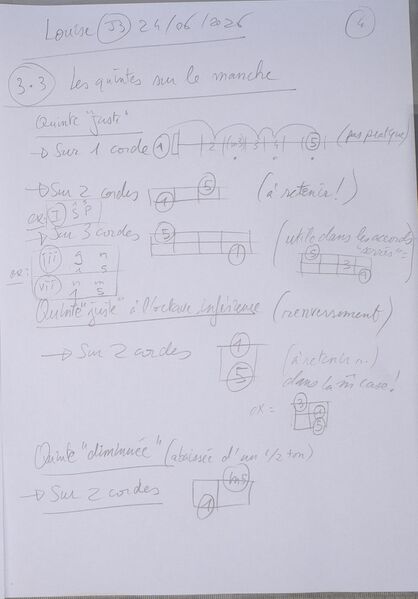 Louise J3 24/06/2026 4
3.3 Les quintes sur le manche
Quinte "juste"
→ Sur 1 corde 1 2 3 4 5 (pas pratique)
→ Sur 2 cordes 1 5 (à retenir !)
ex: I S P
→ Sur 3 cordes 5 1 (utile dans les accords
"serrés" =
5 3 1
ex: iii
vii
Quinte "juste" à l'octave inférieure (renversement)
→ Sur 2 cordes 1 5 (à retenir
dans la m̂ case !
ex = 3 1 5
Quinte "diminuée" (abaissée d'un 1/2 ton)
→ Sur 2 cordes 1 m5